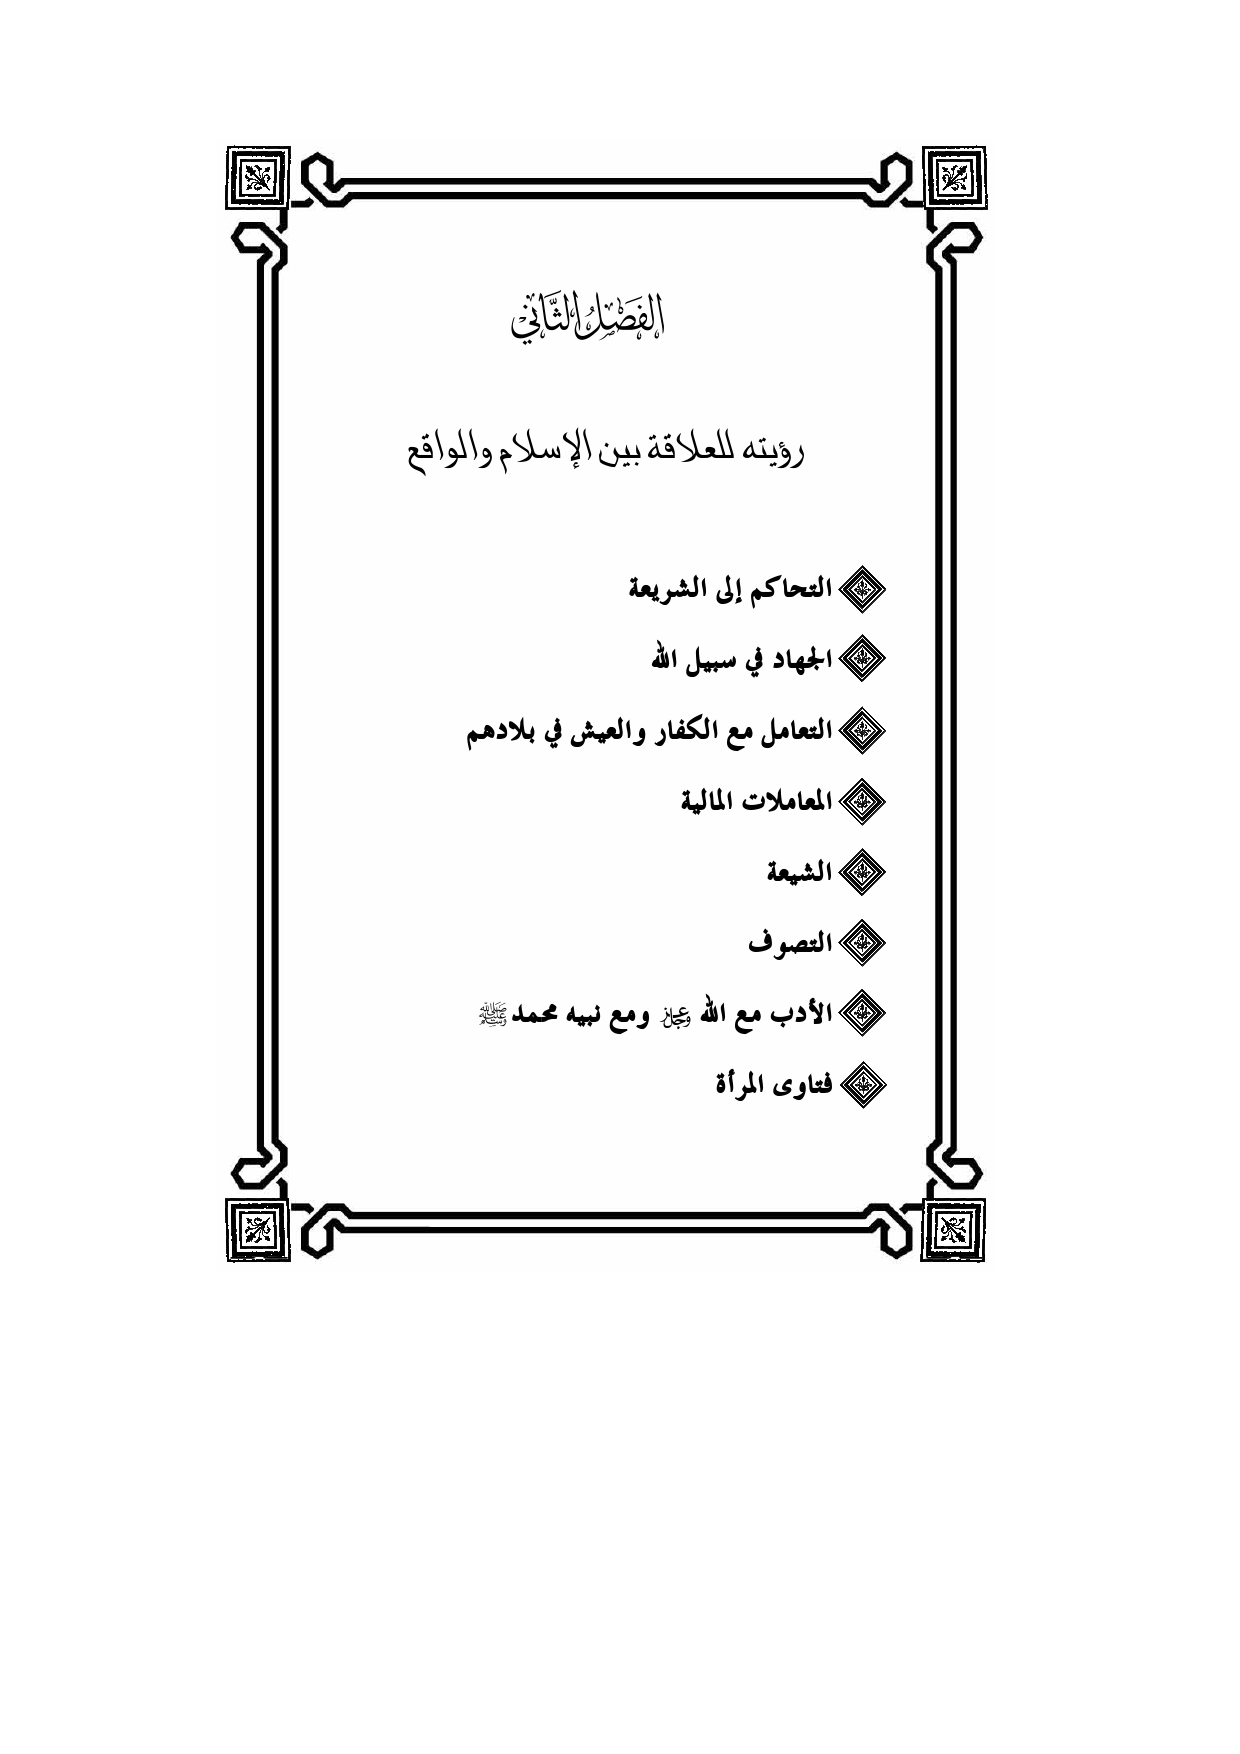 الفَصْلُ الثَّاني
رؤيته للعلاقة بين الإسلام والواقع
التحاكم إلى الشريعة
الجهاد في سبيل الله
التعامل مع الكفار والعيش في بلادهم
المعاملات المالية
الشيعة
التصوف
الأدب مع الله عز وجل ومع نبيه محمد ﷺ
فتاوى المرأة